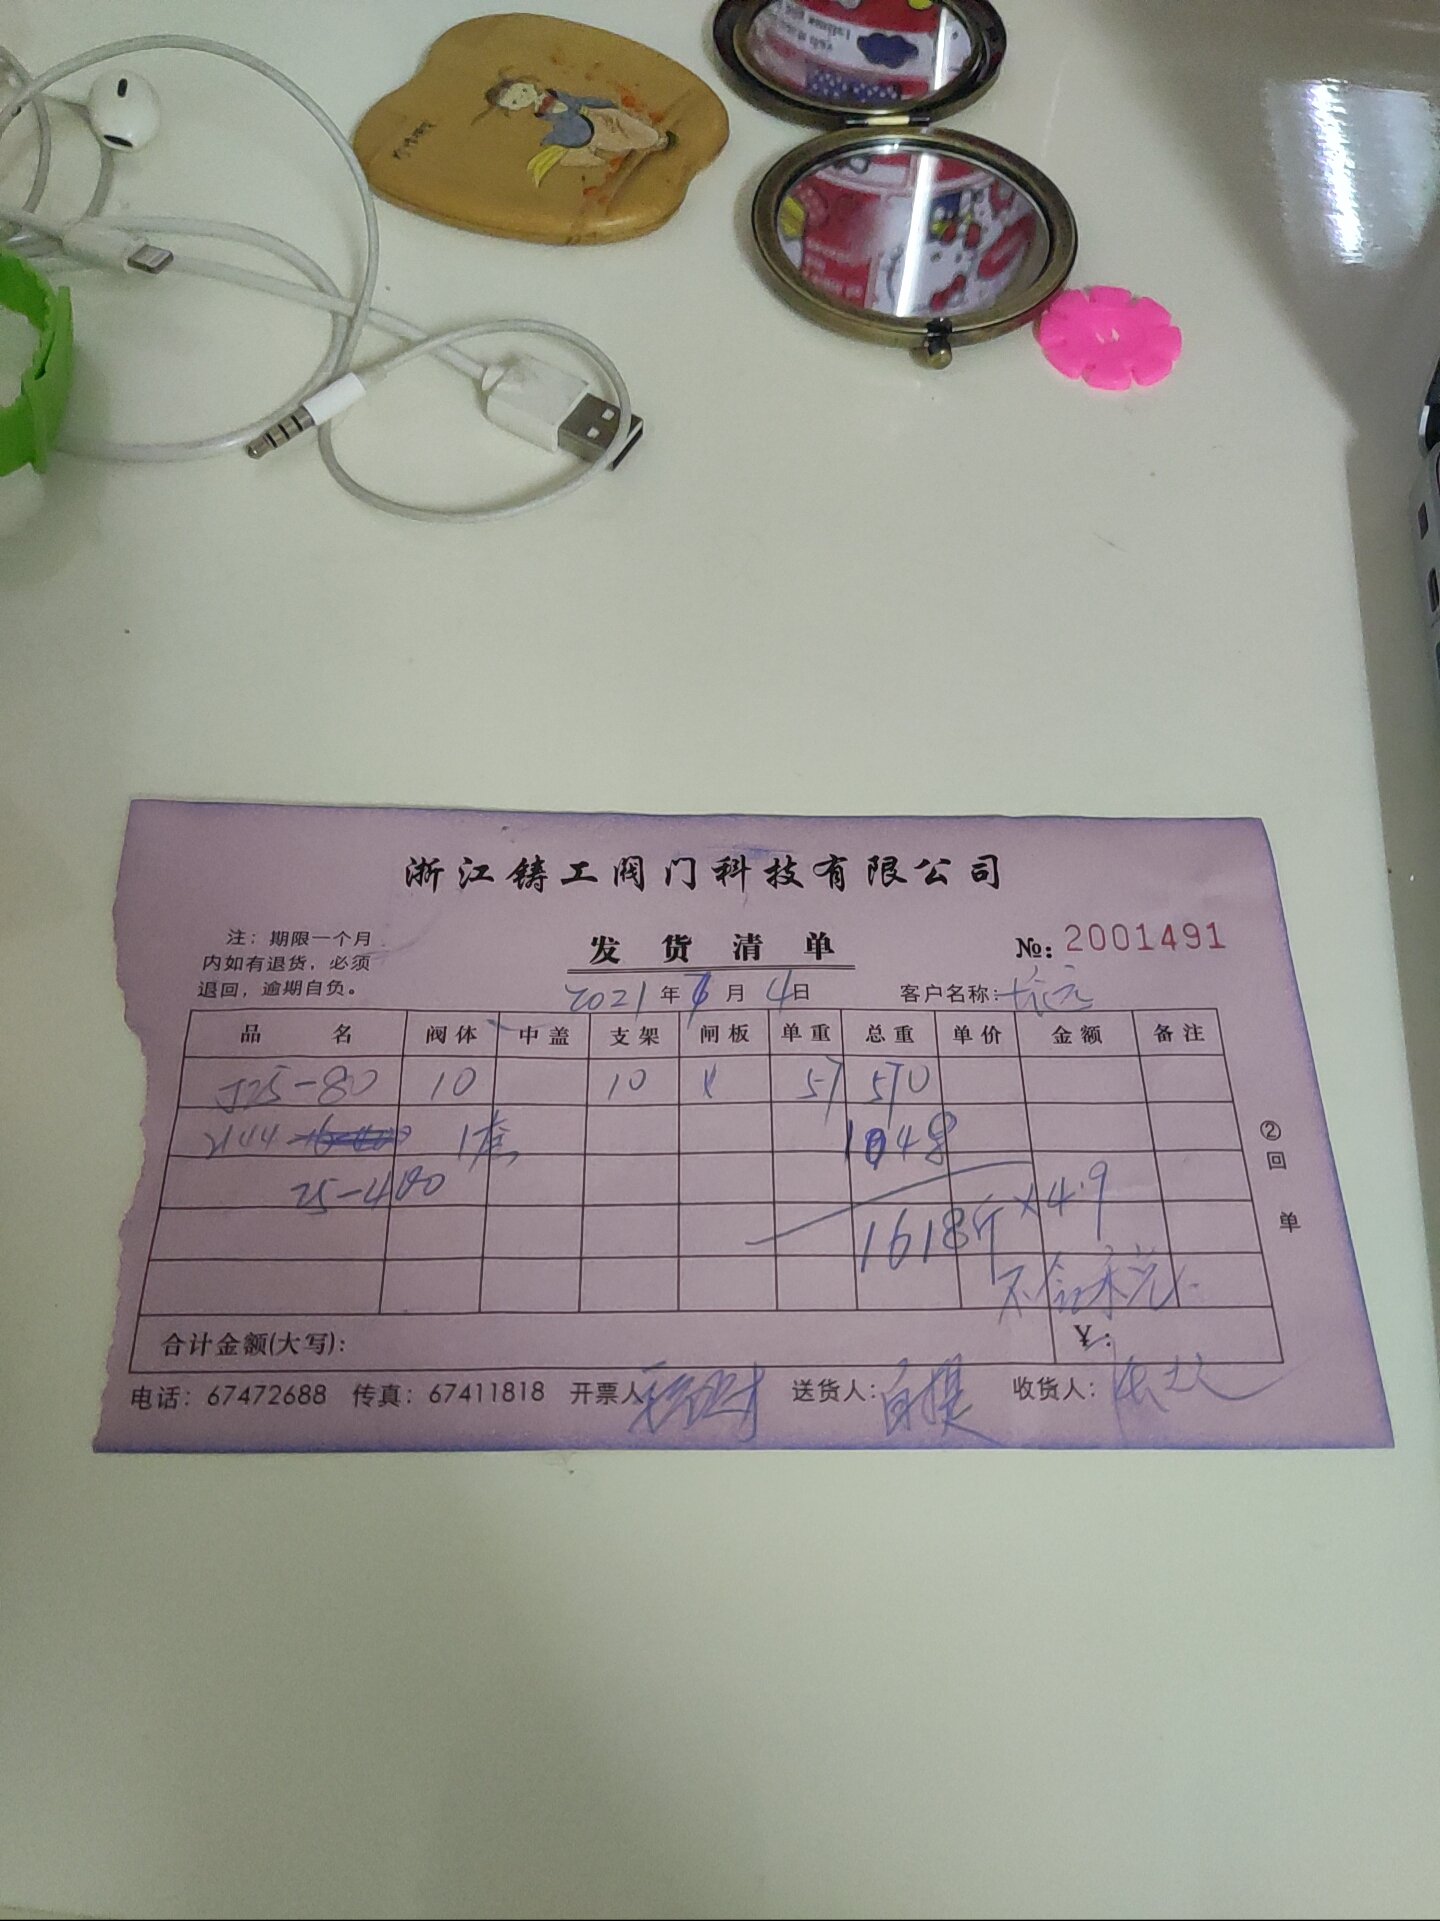 浙江铸工阀门科技有限公司
注：期限一个月
内如有退货，必须
退回，逾期自负。
发货清单
№：2001491
2021年6月4日 客户名称：
品名 阀体 中盖 支架 闸板 单重 总重 单价 金额 备注
J25-80 10 10 57 570
1套 1048
25-400
1618斤×4.9
不含税
②回单
合计金额(大写)： ￥：
电话：67472688 传真：67411818 开票人 送货人：自提 收货人：